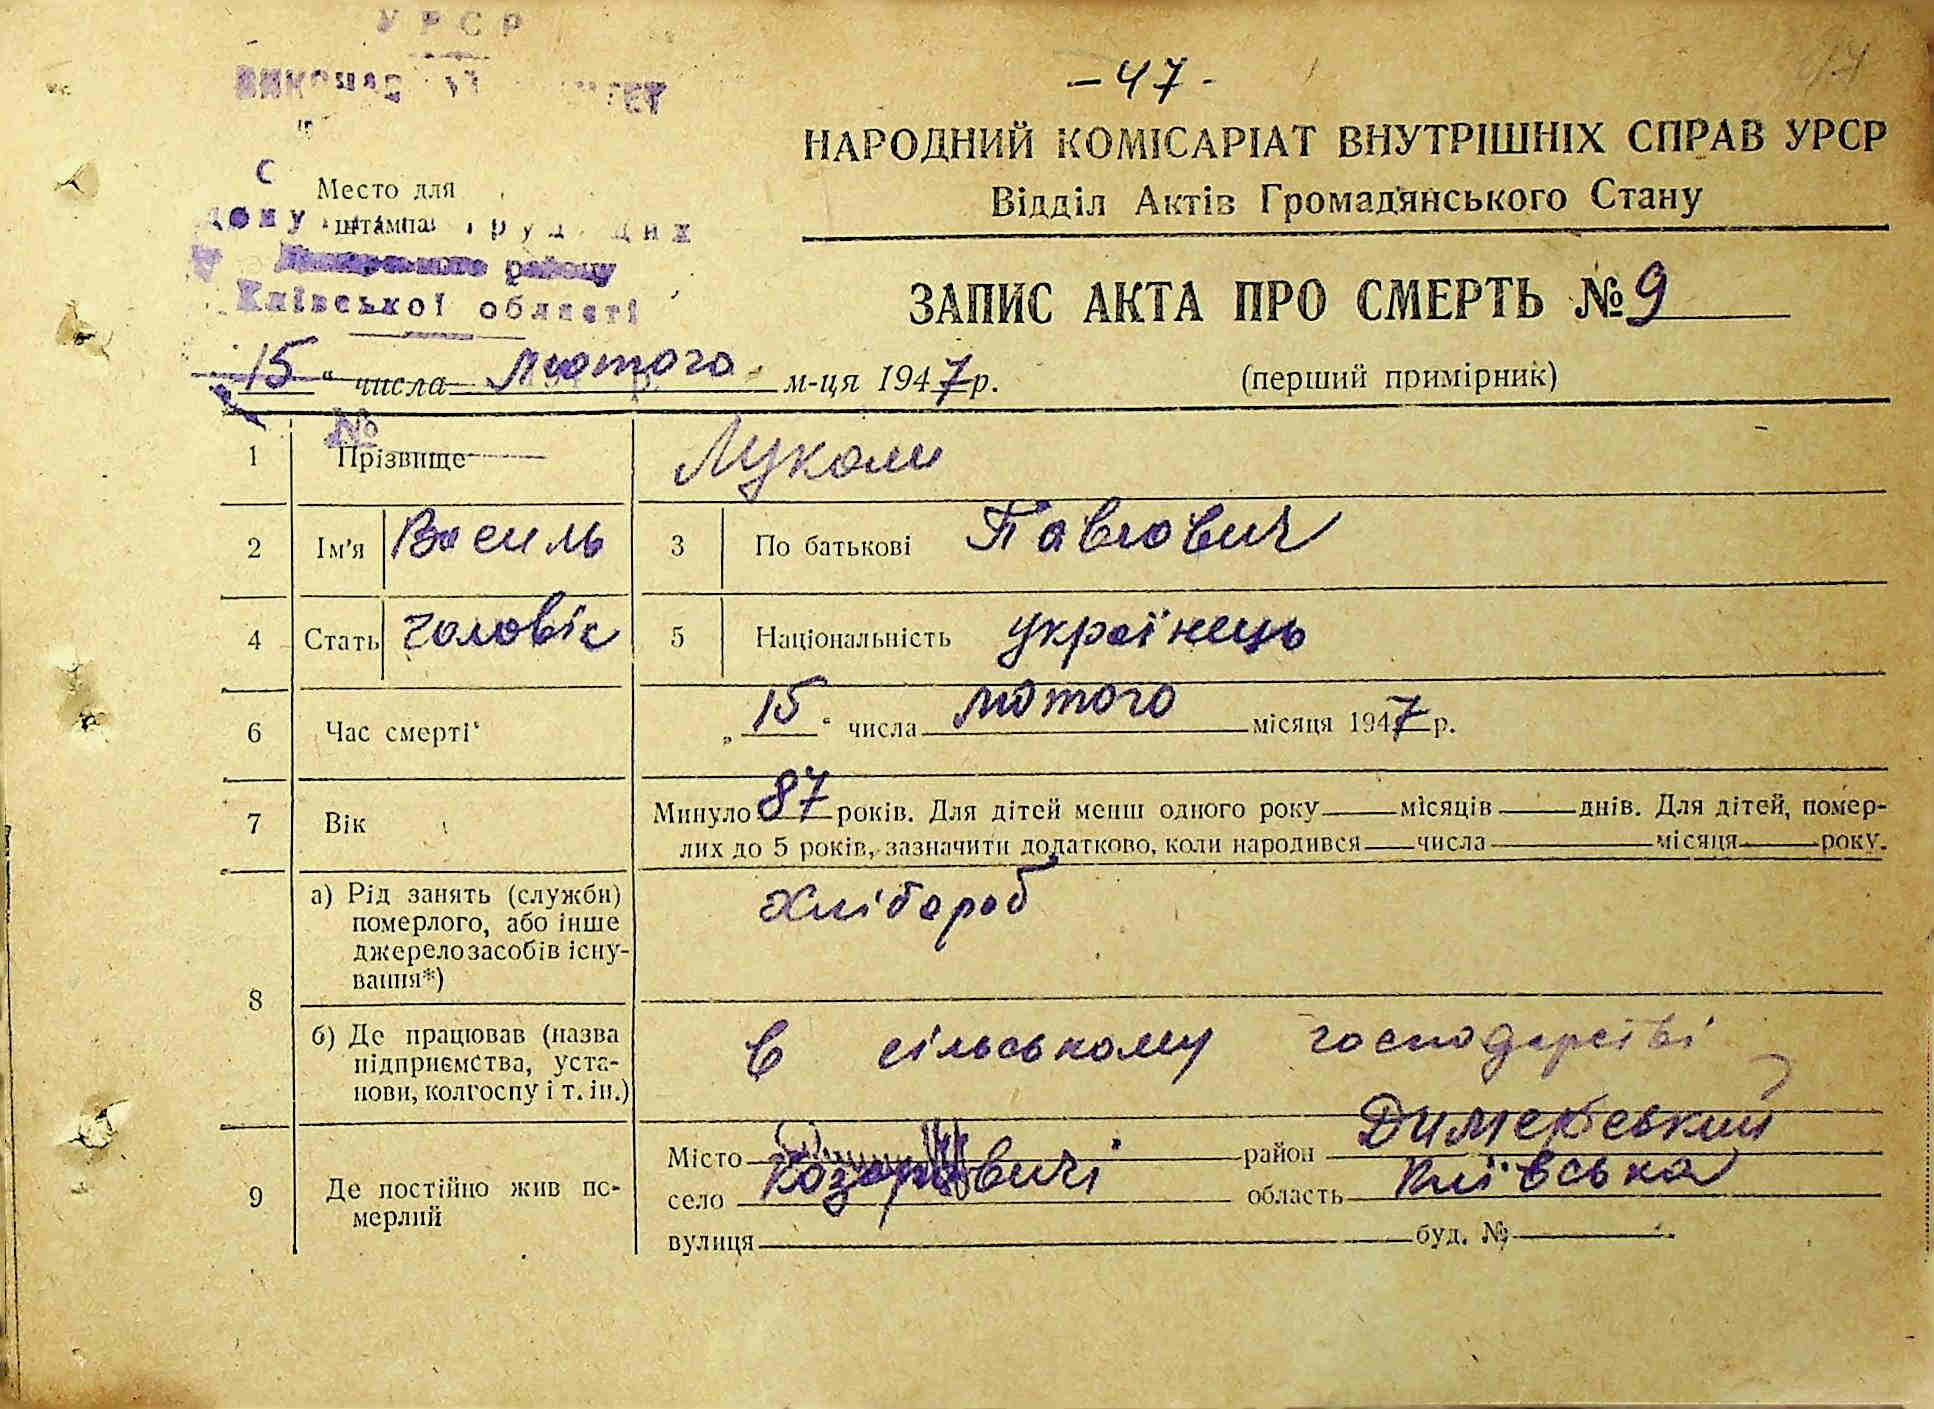 УРСР
- 47 -
47
НАРОДНИЙ КОМІСАРІАТ ВНУТРІШНІХ СПРАВ УРСР
Відділ Актів Громадянського Стану
Место для
штампа
району
Київської області
ЗАПИС АКТА ПРО СМЕРТЬ № 9
„15“ числа лютого м-ця 1947 р.
(перший примірник)
№
1 Прізвище
2 Ім'я Василь 3 По батькові Павлович
4 Стать чоловік 5 Національність українець
6 Час смерті „15“ числа лютого місяця 1947 р.
7 Вік Минуло 87 років. Для дітей менш одного року місяців днів. Для дітей, помер-
лих до 5 років, зазначити додатково, коли народився числа місяця року.
8 а) Рід занять (служби)
померлого, або інше
джерело засобів існу-
вання*)
хлібороб
б) Де працював (назва
підприємства, уста-
нови, колгоспу і т. ін.)
в сільському господарстві
9 Де постійно жив по-
мерлий
Місто район Димерський
село Козаровичі область Київська
вулиця буд. №